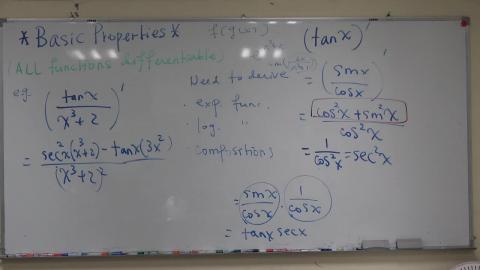 * Basic Properties *
(ALL functions differentiable)
e.g. (tanx / x³+2)'
= sec²x(x³+2) - tanx(3x²) / (x³+2)²
f(g(x))
Need to derive
· exp. func.
· log. "
· compositions
(tanx)'
= (sinx / cosx)'
= cos²x + sin²x / cos²x
= 1 / cos²x = sec²x
= sinx / cosx · 1 / cosx
= tanx secx